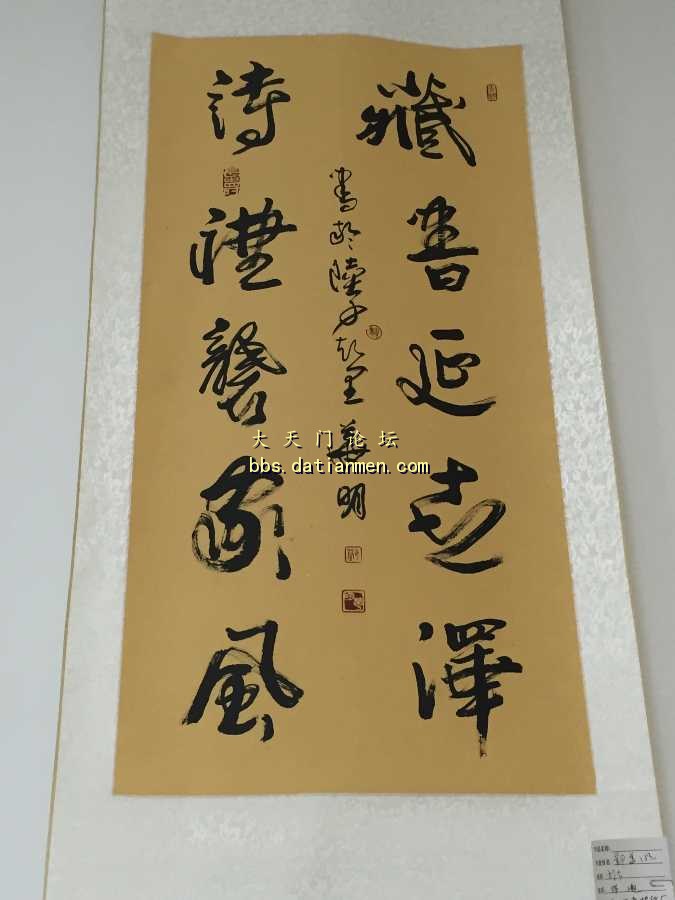 藏書延世澤
詩禮襲家風
書於陸子故里 華明
大天门论坛
bbs.datianmen.com